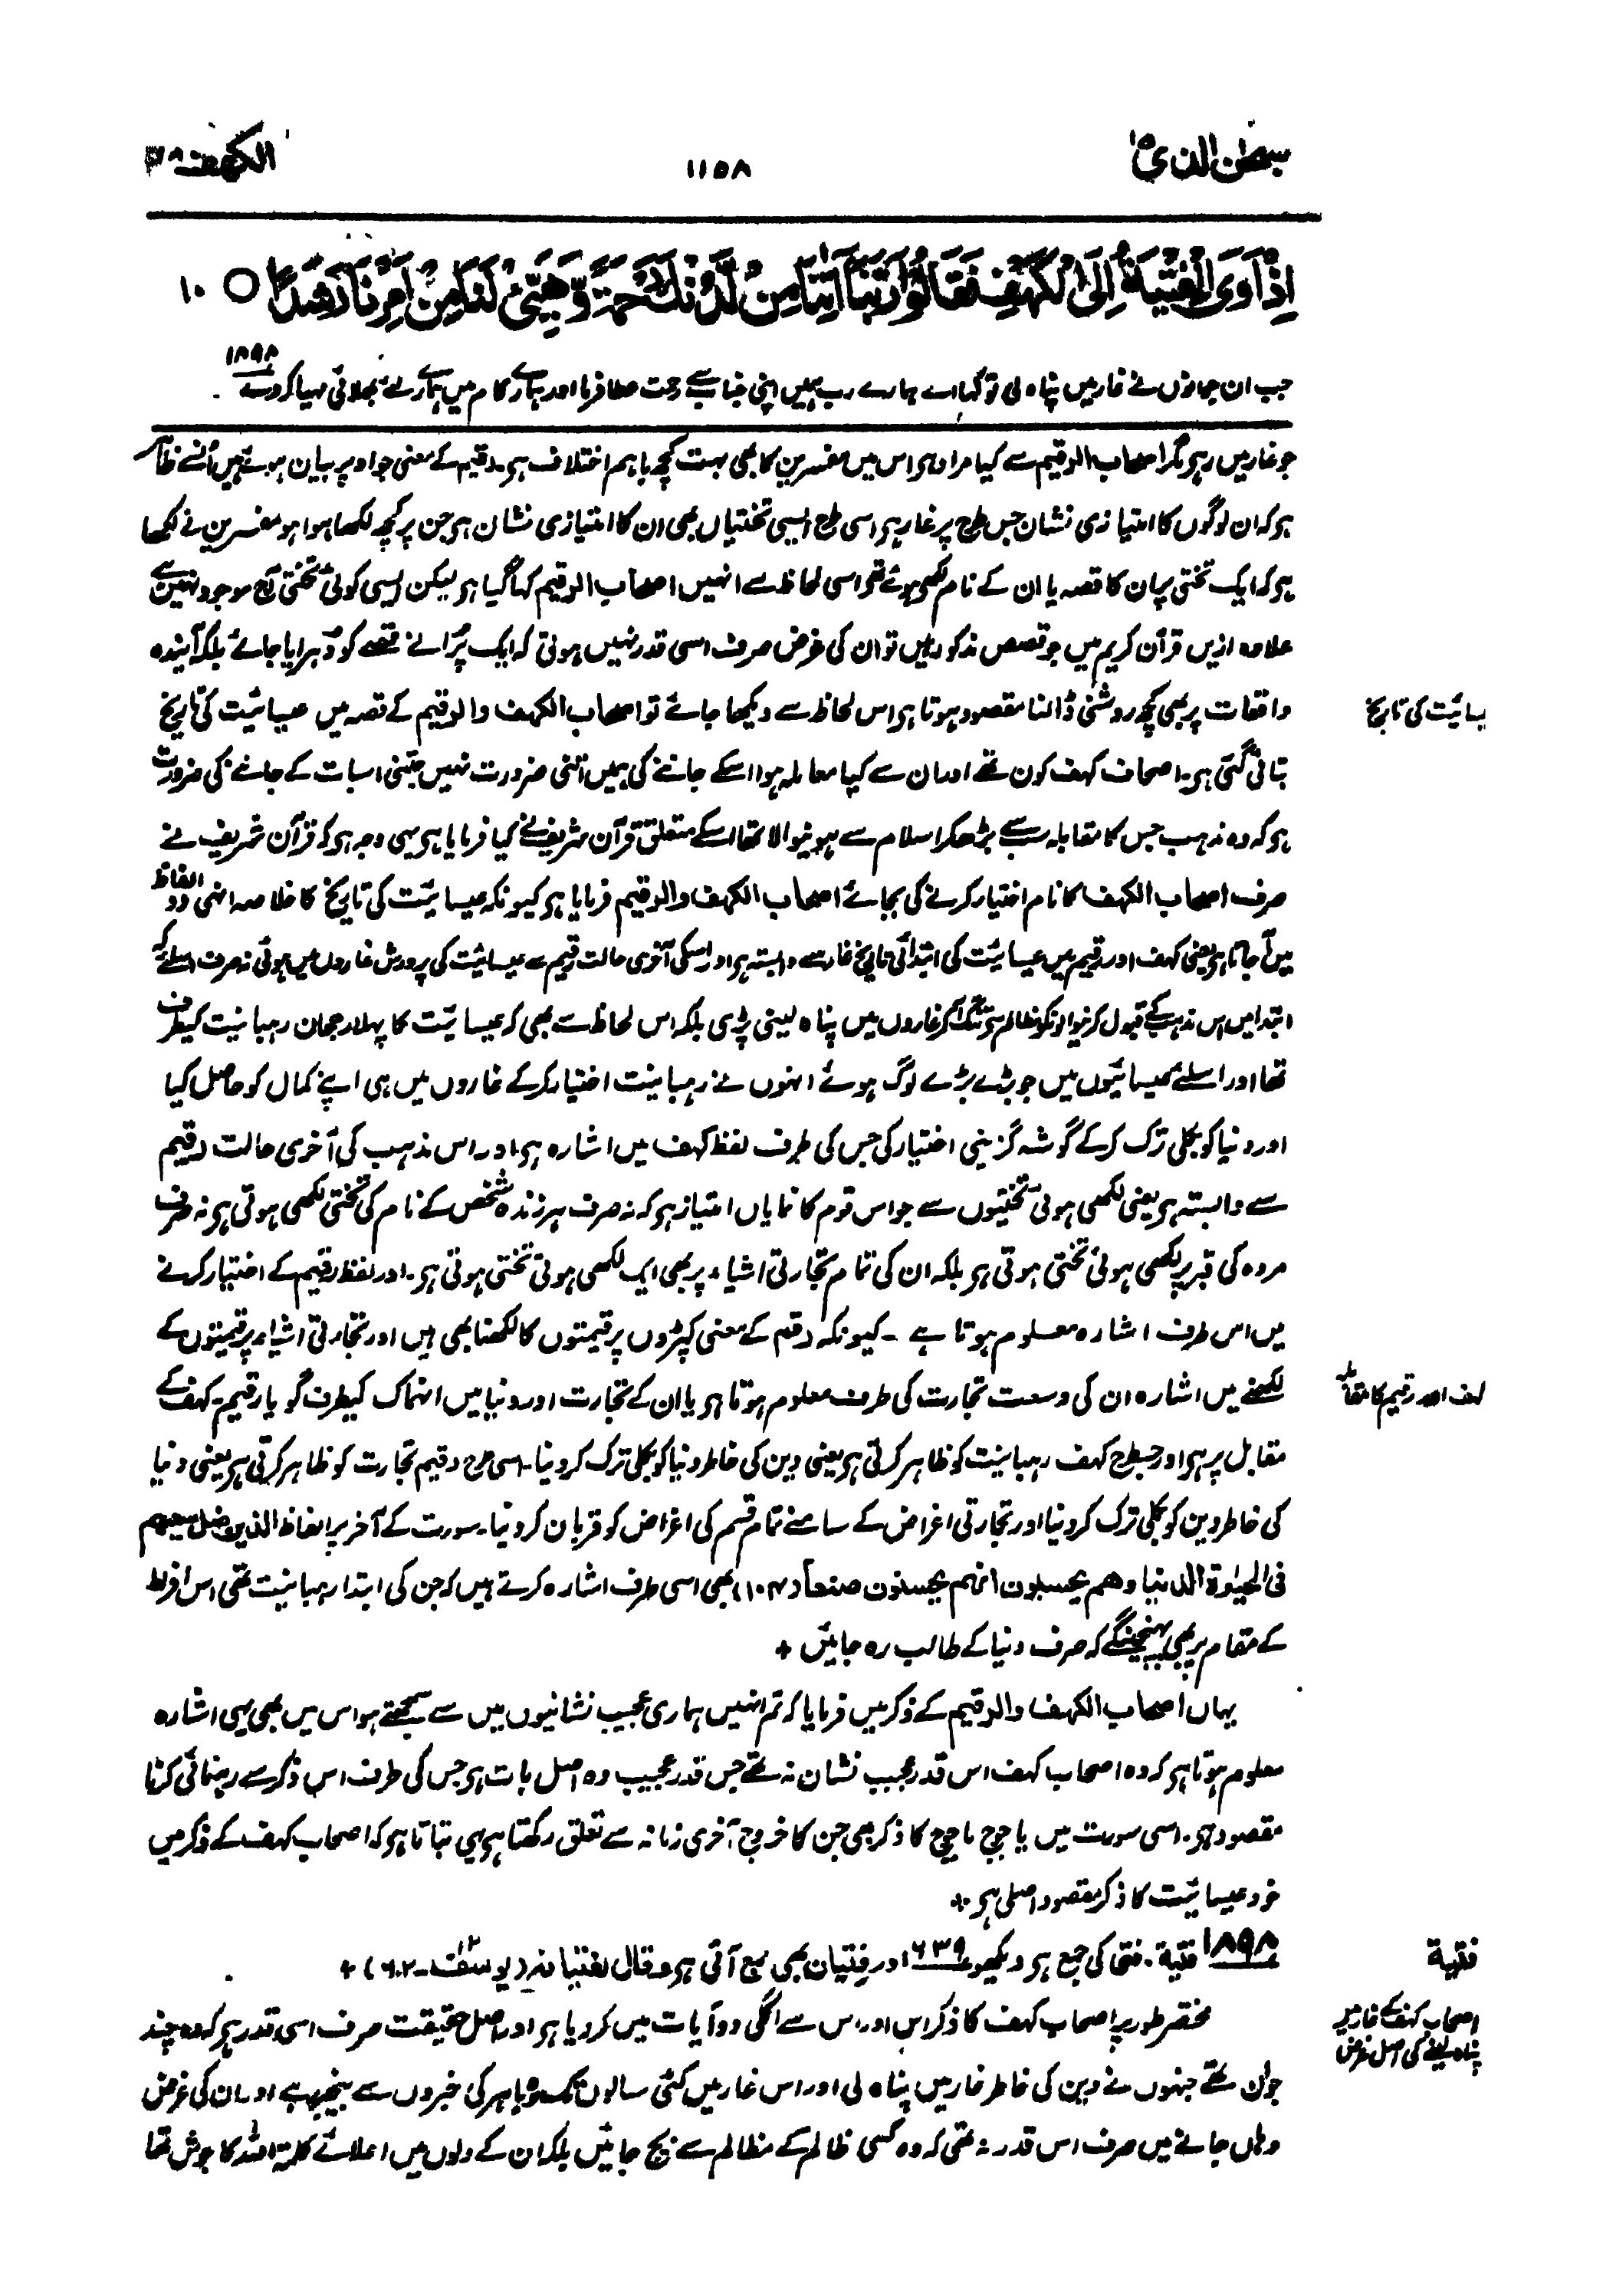 سبحٰن الذی ۱۵
۱۱۵۸
الکھف ۱۸
اِذْ اَوَى الْفِتْيَةُ اِلَى الْكَهْفِ فَقَالُوْا رَبَّنَا اٰتِنَا مِنْ لَّدُنْكَ رَحْمَةً وَّهَيِّئْ لَنَا مِنْ اَمْرِنَا رَشَدًا ○ ۱۰
جب ان جوانوں نے غار میں پناہ لی تو کہا اے ہمارے رب ہمیں اپنی جناب سے رحمت عطا فرما اور ہمارے کام میں ہمارے لئے بھلائی مہیا کر دے ۱۸۹۸
جو غار میں رہے مگر اصحاب الرقیم سے کیا مراد ہو اس میں مفسرین کا بھی بہت کچھ باہم اختلاف ہو۔ رقیم کے معنی جو اوپر بیان ہوئے ہیں اُن سے ظاہر
ہو کہ ان لوگوں کا امتیازی نشان جس طرح پر غار ہو اسی طرح ایسی تختیاں بھی ان کا امتیازی نشان ہو جن پر کچھ لکھا ہوا ہو مفسرین نے لکھا
ہو کہ ایک تختی پر ان کا قصہ یا ان کے نام لکھے ہوئے تھے اسی لحاظ سے انہیں اصحاب الرقیم کہا گیا ہو لیکن ایسی کوئی تختی آج موجود نہیں ہے
علاوہ ازیں قرآن کریم میں جو قصص مذکور ہیں تو ان کی غرض صرف اسی قدر نہیں ہوتی کہ ایک پُرانے قصے کو دُہرایا جائے بلکہ آیندہ
واقعات پر بھی کچھ روشنی ڈالنا مقصود ہوتا ہو اس لحاظ سے دیکھا جائے تو اصحاب الکھف والرقیم کے قصہ میں عیسائیت کی تاریخ
سائیت کی تاریخ
بتائی گئی ہو۔ اصحاب کہف کون تھے اور ان سے کیا معاملہ ہوا اسکے جاننے کی ہمیں اتنی ضرورت نہیں جتنی اسبات کے جاننے کی ضرورت
ہو کہ وہ مذہب جس کا مقابلہ سب سے بڑھکر اسلام سے ہونیوالا تھا اسکے متعلق قرآن شریف نے کیا فرمایا ہو یہی وجہ ہو کہ قرآن شریف نے
صرف اصحاب الکھف کا نام اختیار کرنے کی بجائے اصحاب الکھف والرقیم فرمایا ہو کیونکہ عیسائیت کی تاریخ کا خلاصہ انہی دو الفاظ
میں آجاتا ہو یعنی کہف اور رقیم میں عیسائیت کی ابتدائی تاریخ غار سے وابستہ ہو اور اسکی آخری حالت رقیم سے عیسائیت کی پرورش غاروں میں ہوئی نہ صرف اسلئے کہ
ابتدا میں اس مذہب کے قبول کرنیوالونکو مظالم سے تنگ آکر غاروں میں پناہ لینی پڑی بلکہ اس لحاظ سے بھی کہ عیسائیت کا پہلا رجحان رہبانیت کیطرف
تھا اور اسلئے عیسائیوں میں جو بڑے بڑے لوگ ہوئے انہوں نے رہبانیت اختیار کرکے غاروں میں ہی اپنے کمال کو حاصل کیا
اور دنیا کو بکلی ترک کرکے گوشہ گزینی اختیار کی جس کی طرف لفظ کہف میں اشارہ ہو اور اس مذہب کی آخری حالت رقیم
سے وابستہ ہو یعنی لکھی ہوئی تختیوں سے جو اس قوم کا نمایاں امتیاز ہو کہ نہ صرف ہر زندہ شخص کے نام کی تختی لکھی ہوتی ہو نہ صرف
مردہ کی قبر پر لکھی ہوئی تختی ہوتی ہو بلکہ ان کی تمام تجارتی اشیاء پر بھی ایک لکھی ہوئی تختی ہوتی ہو۔ اور لفظ رقیم کے اختیار کرنے
میں اس طرف اشارہ معلوم ہوتا ہے ۔ کیونکہ رقم کے معنی کپڑوں پر قیمتوں کا لکھنا بھی ہیں اور تجارتی اشیاء پر قیمتوں کے
لکھنے میں اشارہ ان کی وسعت تجارت کی طرف معلوم ہوتا ہو یا ان کے تجارت اور دنیا میں انہماک کیطرف گویا رقیم۔ کہف کے
لہف اور رقیم کا مقابلہ
مقابل پر ہو اور جسطرح کہف رہبانیت کو ظاہر کرتی ہو یعنی دین کی خاطر دنیا کو بکلی ترک کر دینا۔ اسی طرح رقیم تجارت کو ظاہر کرتی ہو یعنی دنیا
کی خاطر دین کو بکلی ترک کر دینا اور تجارتی اغراض کے سامنے تمام قسم کی اغراض کو قربان کر دینا۔ سورت کے آخر پر الفاظ الذین ضل سعیھم
فی الحیٰوۃ الدنیا وھم یحسبون انھم یحسنون صنعاً (۱۰۴) بھی اسی طرف اشارہ کرتے ہیں کہ جن کی ابتدا رہبانیت تھی اس افراط
کے مقام پر بھی پہنچینگے کہ صرف دنیا کے طالب رہ جائیں +
یہاں اصحاب الکھف والرقیم کے ذکر میں فرمایا کہ تم انہیں ہماری عجیب نشانیوں میں سے سمجھتے ہو اس میں بھی یہی اشارہ
معلوم ہوتا ہو کہ وہ اصحاب کہف اس قدر عجیب نشان نہ تھے جس قدر عجیب وہ اصل بات ہو جس کی طرف اس ذکر سے رہنمائی کرنا
مقصود ہو۔ اسی سورت میں یاجوج ماجوج کا ذکر بھی جن کا خروج آخری زمانہ سے تعلق رکھتا ہو یہی بتاتا ہو کہ اصحاب کہف کے ذکر میں
خود عیسائیت کا ذکر مقصود اصلی ہو +
۱۸۹۸ فتیۃ۔ فتی کی جمع ہو دیکھو ۶۳۹ اور فِتیان بھی جمع آئی ہو وقال لفتیانہ (یوسف ۱۲۔۶۲) +
فتیۃ
مختصر طور پر اصحاب کہف کا ذکر اس اور اس سے اگلی دو آیات میں کر دیا ہو اور اصل حقیقت صرف اسی قدر ہو کہ وہ چند
اصحاب کہف کے غار میں
پناہ لینے کی اصل غرض
جوان تھے جنہوں نے دین کی خاطر غار میں پناہ لی اور اس غار میں کئی سالوں تک وہ باہر کی خبروں سے بیخبر رہے اور ان کی غرض
وہاں جانے میں صرف اس قدر نہ تھی کہ وہ کسی ظالم کے مظالم سے بچ جائیں بلکہ ان کے دلوں میں اعلائے کلمۃ اللہ کا جوش تھا